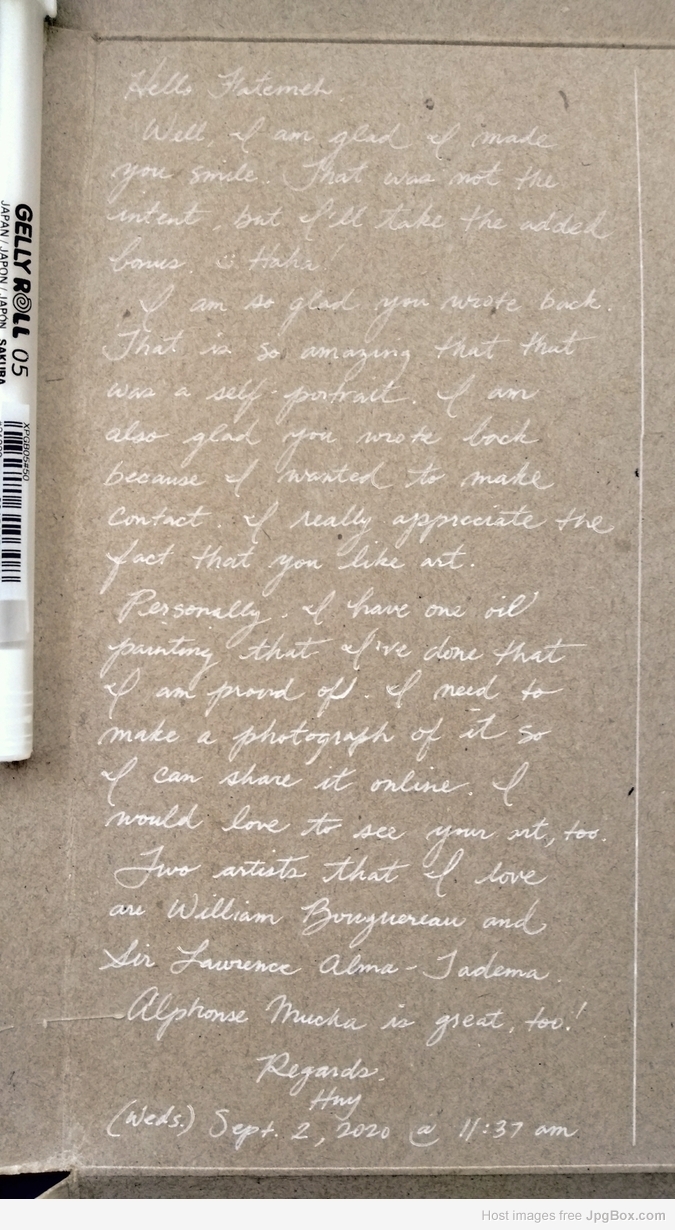 Hello Fatemeh
Well, I am glad I made
you smile. That was not the
intent, but I'll take the added
bonus. ☺ Haha!
I am so glad you wrote back.
That is so amazing that that
was a self-portrait. I am
also glad you wrote back
because I wanted to make
contact. I really appreciate the
fact that you like art.
Personally, I have one oil
painting that I've done that
I am proud of. I need to
make a photograph of it so
I can share it online. I
would love to see your art, too.
Two artists that I love
are William Bouguereau and
Sir Lawrence Alma-Tadema.
Alphonse Mucha is great, too!
Regards,
Huy
(Weds.) Sept. 2, 2020 @ 11:37 am
GELLY ROLL 05
JAPAN / JAPON / JAPÓN SAKURA
XPGB05#50
Host images free JpgBox.com